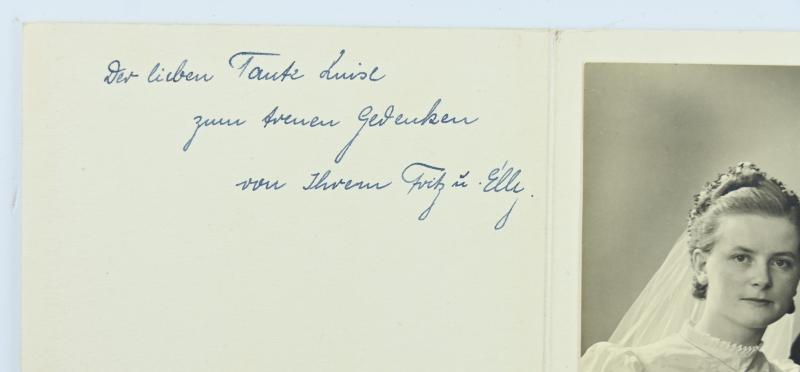 Der lieben Tante Luise
zum treuen Gedenken
von Ihrem Fritz u. Elly.